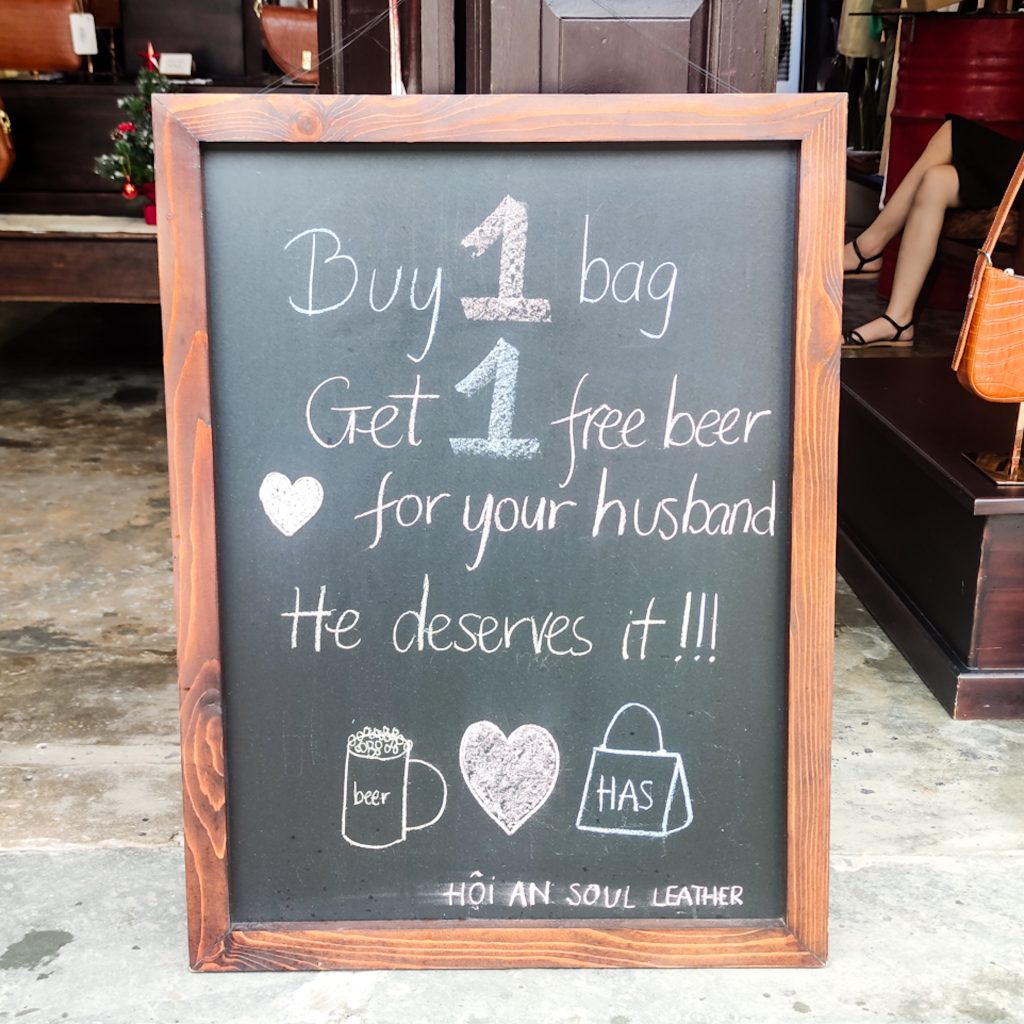 Buy 1 bag
Get 1 free beer
for your husband
He deserves it!!!
beer
HAS
HỘi AN SOUL LEATHER